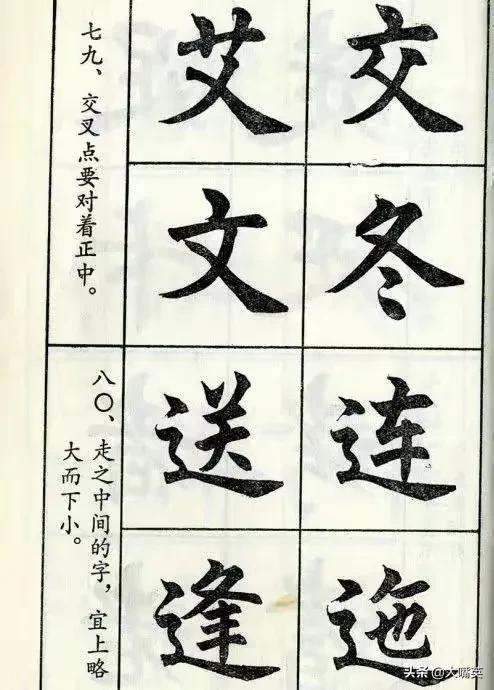 七九、交叉点要对着正中。
交冬
艾文
八〇、走之中间的字，宜上略
大而下小。
连迤
送逢
头条 @大嘴英